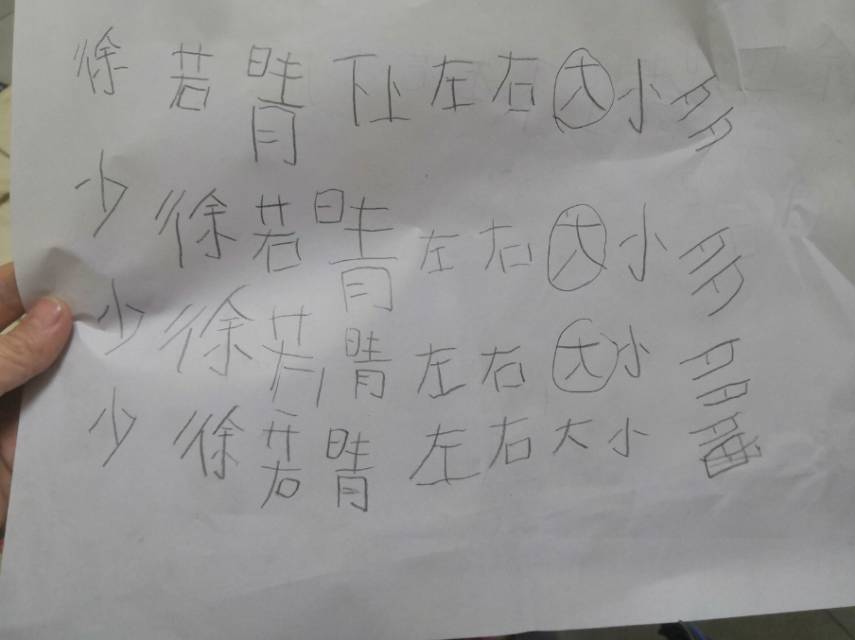 徐若晴下上左右大小多
少徐若晴左右大小多
少徐若晴左右大小多
少徐若晴左右大小